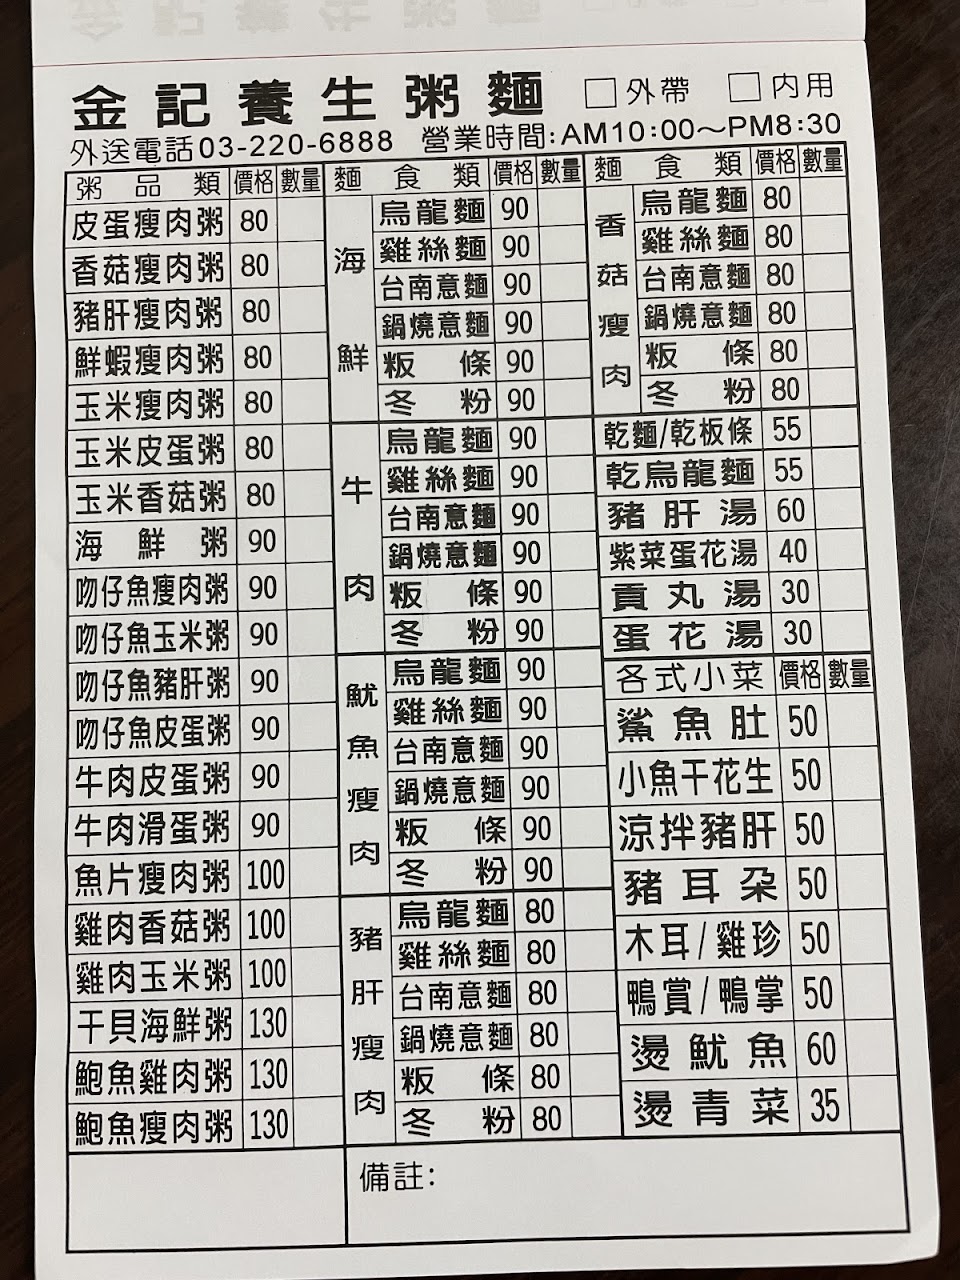 金記養生粥麵 □外帶 □內用
外送電話03-220-6888 營業時間:AM10:00～PM8:30
粥品類 價格 數量
皮蛋瘦肉粥 80
香菇瘦肉粥 80
豬肝瘦肉粥 80
鮮蝦瘦肉粥 80
玉米瘦肉粥 80
玉米皮蛋粥 80
玉米香菇粥 80
海鮮粥 90
吻仔魚瘦肉粥 90
吻仔魚玉米粥 90
吻仔魚豬肝粥 90
吻仔魚皮蛋粥 90
牛肉皮蛋粥 90
牛肉滑蛋粥 90
魚片瘦肉粥 100
雞肉香菇粥 100
雞肉玉米粥 100
干貝海鮮粥 130
鮑魚雞肉粥 130
鮑魚瘦肉粥 130
麵食類 價格 數量
海鮮
烏龍麵 90
雞絲麵 90
台南意麵 90
鍋燒意麵 90
粄條 90
冬粉 90
牛肉
烏龍麵 90
雞絲麵 90
台南意麵 90
鍋燒意麵 90
粄條 90
冬粉 90
魷魚瘦肉
烏龍麵 90
雞絲麵 90
台南意麵 90
鍋燒意麵 90
粄條 90
冬粉 90
豬肝瘦肉
烏龍麵 80
雞絲麵 80
台南意麵 80
鍋燒意麵 80
粄條 80
冬粉 80
麵食類 價格 數量
香菇瘦肉
烏龍麵 80
雞絲麵 80
台南意麵 80
鍋燒意麵 80
粄條 80
冬粉 80
乾麵/乾板條 55
乾烏龍麵 55
豬肝湯 60
紫菜蛋花湯 40
貢丸湯 30
蛋花湯 30
各式小菜 價格 數量
鯊魚肚 50
小魚干花生 50
涼拌豬肝 50
豬耳朵 50
木耳/雞珍 50
鴨賞/鴨掌 50
燙魷魚 60
燙青菜 35
備註: